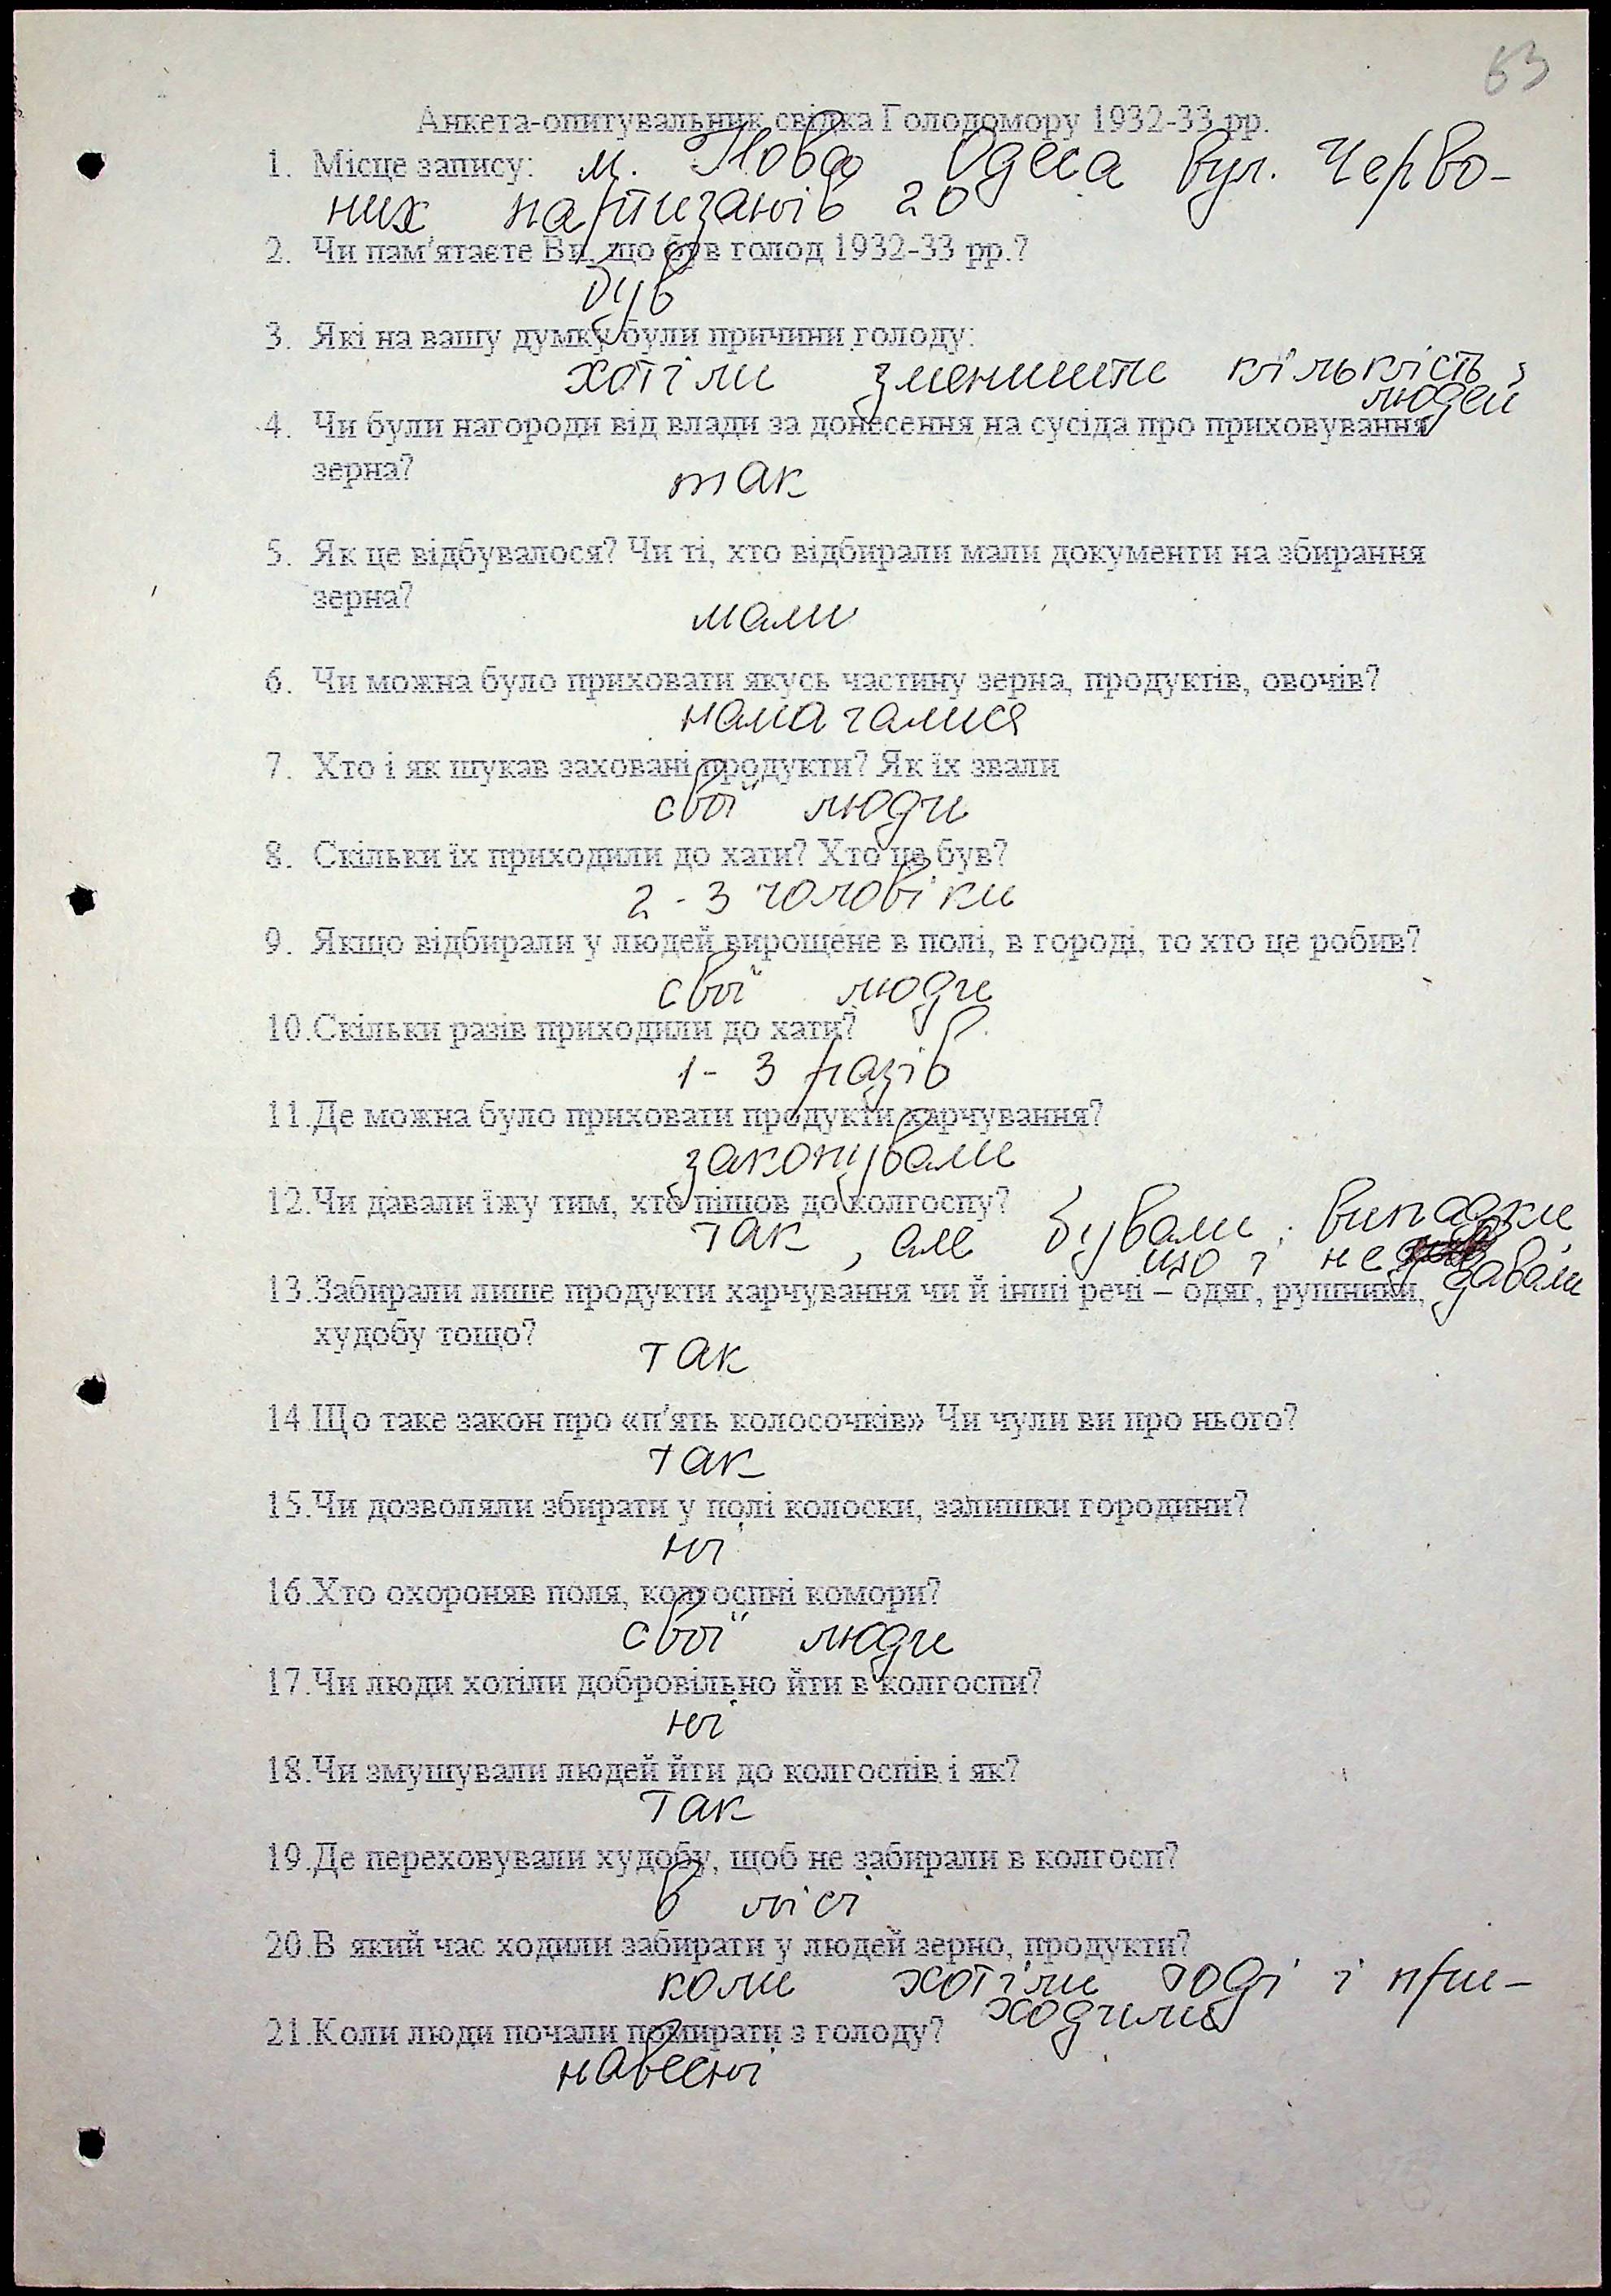 63
Анкета-опитувальник свідка Голодомору 1932-33 рр.
1. Місце запису: м. Нова Одеса вул. Черво-
них партизанів 20
2. Чи пам'ятаєте Ви, що був голод 1932-33 рр.?
був
3. Які на вашу думку були причини голоду:
хотіли зменшити кількість
людей
4. Чи були нагороди від влади за донесення на сусіда про приховування
зерна? так
5. Як це відбувалося? Чи ті, хто відбирали мали документи на збирання
зерна?
мали
6. Чи можна було приховати якусь частину зерна, продуктів, овочів?
намагалися
7. Хто і як шукав заховані продукти? Як їх звали
свої люди
8. Скільки їх приходили до хати? Хто це був?
2-3 чоловіки
9. Якщо відбирали у людей вирощене в полі, в городі, то хто це робив?
свої люди
10. Скільки разів приходили до хати?
1-3 разів
11. Де можна було приховати продукти харчування?
закопували
12. Чи давали їжу тим, хто пішов до колгоспу?
так, але бували випадки
що і не давали
13. Забирали лише продукти харчування чи й інші речі – одяг, рушники,
худобу тощо?
так
14. Що таке закон про «п'ять колосочків» Чи чули ви про нього?
так
15. Чи дозволяли збирати у полі колоски, залишки городини?
ні
16. Хто охороняв поля, колгоспні комори?
свої люди
17. Чи люди хотіли добровільно йти в колгоспи?
ні
18. Чи змушували людей йти до колгоспів і як?
так
19. Де переховували худобу, щоб не забирали в колгосп?
в лісі
20. В який час ходили забирати у людей зерно, продукти?
коли хотіли тоді і при-
ходили
21. Коли люди почали помирати з голоду?
навесні